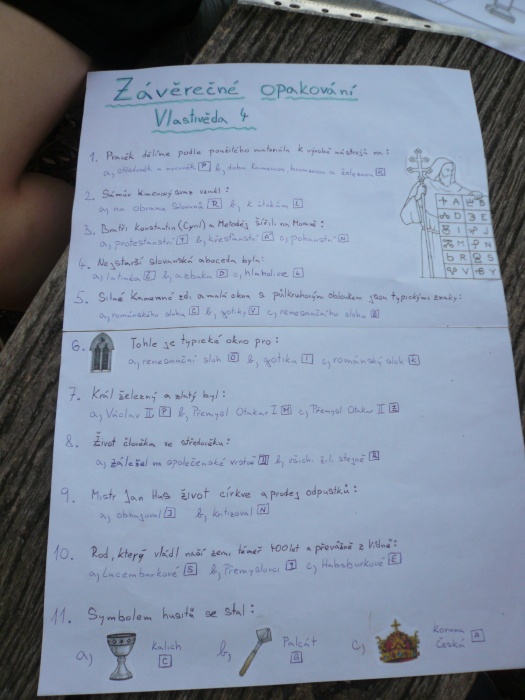 Závěrečné opakování
Vlastivěda 4
1. Pravěk dělíme podle použitého materiálu k výrobě nástrojů na:
a, středověk a novověk P b, dobu kamennou, bronzovou a železnou
2. Sámův kmenový svaz vznikl:
a, na obranu Slovanů R b, k útokům
3. Bratři Konstantin (Cyril) a Metoděj šířili na Moravě:
a, protestantství b, křesťanství c, pohanství N
4. Nejstarší slovanská abeceda byla:
a, latinka b, azbuka D c, hlaholice
5. Silné kamenné zdi a malá okna s půlkruhovým obloukem jsou typickými znaky:
a, románského slohu b, gotiky V c, renesančního slohu
6. Tohle je typické okno pro:
a, renesanční sloh b, gotika I c, románský sloh K
7. Král železný a zlatý byl:
a, Václav II P b, Přemysl Otakar I M c, Přemysl Otakar II Ž
8. Život člověka ve středověku:
a, záležel na společenské vrstvě b, všich. žili stejně
9. Mistr Jan Hus život církve a prodej odpustků:
a, obhajoval J b, kritizoval N
10. Rod, který vládl naší zemi téměř 400 let a převážně z Vídně:
a, Lucemburkové S b, Přemyslovci c, Habsburkové E
11. Symbolem husitů se stal:
a, kalich C b, Palcát c, koruna česká A